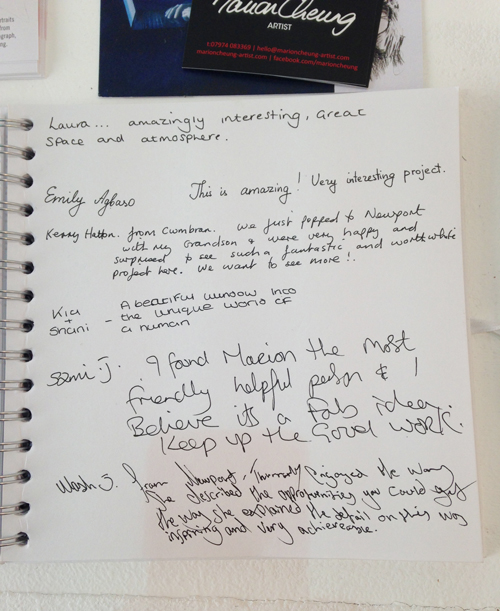 Marion Cheung
ARTIST
t:07974 083369 | hello@marioncheung-artist.com
marioncheung-artist.com | facebook.com/marioncheung
Laura... amazingly interesting, Great
space and atmosphere.
Emily Agbaso This is amazing! Very interesting project.
Kerry Hatton. from Cwmbran. We just popped to Newport
with my Grandson & were very happy and
surprised to see such a fantastic and worthwhile
project here. We want to see more!.
Kia + Shani - A beatiful window into
the unique world of
a human
Sami J. I found Marion the most
friendly helpful person & I
Believe it's a Fab idea.
Keep up the Good work.
J. from Newport, Thoroughly Enjoyed the way
she described the opportunities you could get
the way she explained the detail on this was
inspiring and very achiereable.